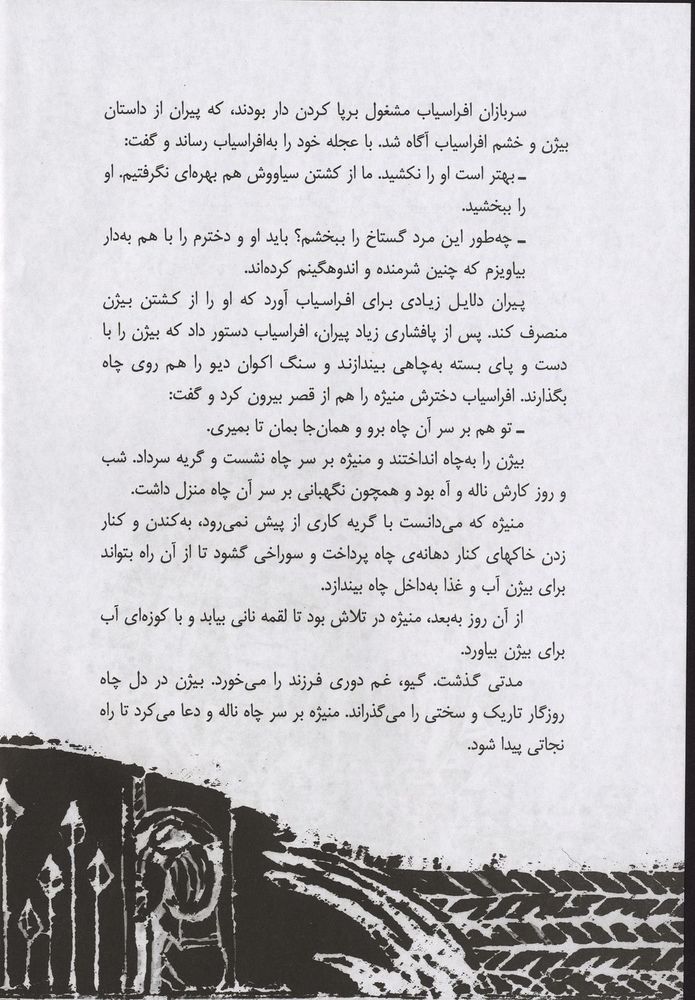 سربازان افراسیاب مشغول برپا کردن دار بودند، که پیران از داستان
بیژن و خشم افراسیاب آگاه شد. با عجله خود را به‌افراسیاب رساند و گفت:
ـ بهتر است او را نکشید. ما از کشتن سیاووش هم بهره‌ای نگرفتیم. او
را ببخشید.
ـ چه‌طور این مرد گستاخ را ببخشم؟ باید او و دخترم را با هم به‌دار
بیاویزم که چنین شرمنده و اندوهگینم کرده‌اند.
پیران دلایل زیادی برای افراسیاب آورد که او را از کشتن بیژن
منصرف کند. پس از پافشاری زیاد پیران، افراسیاب دستور داد که بیژن را با
دست و پای بسته به‌چاهی بیندازند و سنگ اکوان دیو را هم روی چاه
بگذارند. افراسیاب دخترش منیژه را هم از قصر بیرون کرد و گفت:
ـ تو هم بر سر آن چاه برو و همان‌جا بمان تا بمیری.
بیژن را به‌چاه انداختند و منیژه بر سر چاه نشست و گریه سرداد. شب
و روز کارش ناله و آه بود و همچون نگهبانی بر سر آن چاه منزل داشت.
منیژه که می‌دانست با گریه کاری از پیش نمی‌رود، به‌کندن و کنار
زدن خاکهای کنار دهانه‌ی چاه پرداخت و سوراخی گشود تا از آن راه بتواند
برای بیژن آب و غذا به‌داخل چاه بیندازد.
از آن روز به‌بعد، منیژه در تلاش بود تا لقمه نانی بیابد و با کوزه‌ای آب
برای بیژن بیاورد.
مدتی گذشت. گیو، غم دوری فرزند را می‌خورد. بیژن در دل چاه
روزگار تاریک و سختی را می‌گذراند. منیژه بر سر چاه ناله و دعا می‌کرد تا راه
نجاتی پیدا شود.